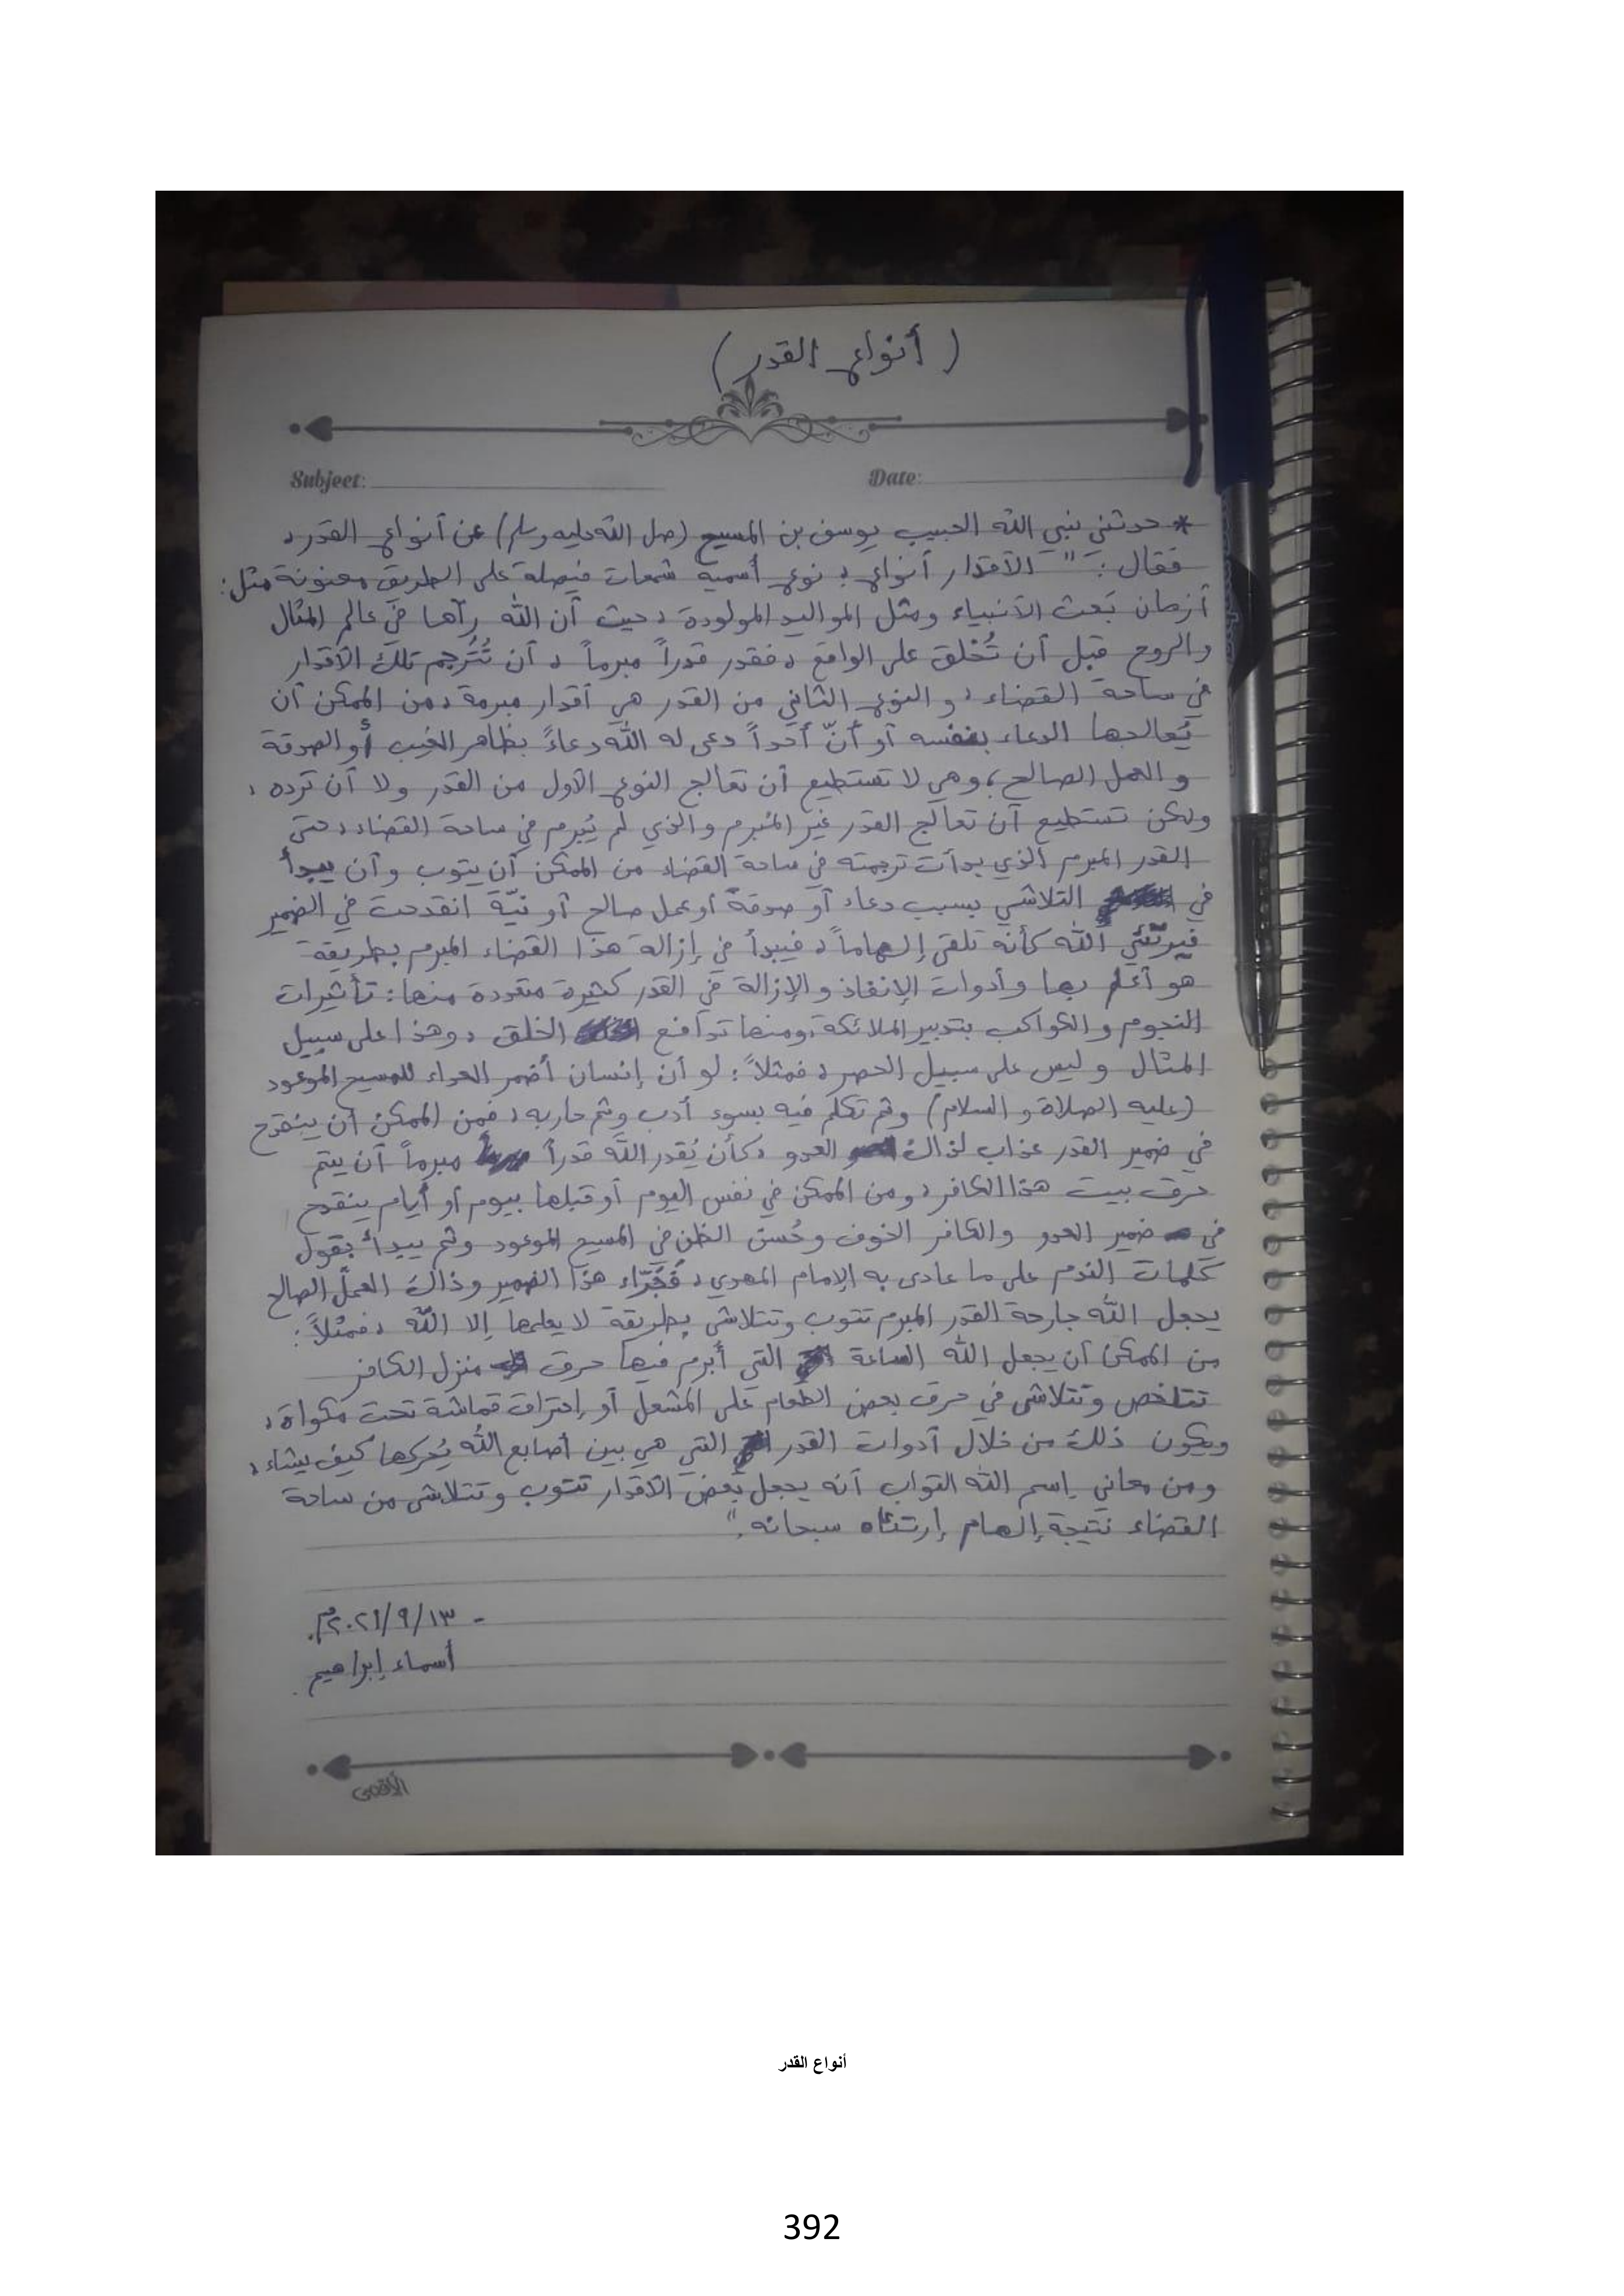 ( أنواع القدر )
Subject:
Date:
* حدثني نبي الله الحبيب يوسف بن المسيح (صلى الله عليه وسلم) عن أنواع القدر ،
فقال : " الأقدار أنواع ؛ نوع أسميه شمعات فيصلة على الطريق معنونة مثل :
أزمان بَعث الأنبياء ومثل المواليد المولودة ، حيث أن الله رآها في عالم المثال
والروح قبل أن تُخلق على الواقع ، فقدر قدراً مبرماً ، أن تُترجم تلك الأقدار
في ساحة القضاء ، و النوع الثاني من القدر هي أقدار مبرمة ، من الممكن أن
يُعالجها الدعاء بنفسه أو أنّ أحداً دعى له الله دعاءً بظاهر الغيب أو الصدقة
و العمل الصالح ، وهي لا تستطيع أن تعالج النوع الأول من القدر ولا أن ترده ،
ولكن تستطيع أن تعالج القدر غير المُبرم والذي لم يُبرم في ساحة القضاء ، حتى
القدر المبرم الذي بدأت ترجمته في ساحة القضاء من الممكن أن يتوب وأن يبدأ
في التلاشي بسبب دعاء أو صدقة أو عمل صالح أو نيّة انقدحت في الضمير
فيرتئي الله كأنه تلقى إلهاماً ، فيبدأ في إزالة هذا القضاء المبرم بطريقة
هو أعلم بها وأدوات الإنفاذ والإزالة في القدر كثيرة متعددة منها : تأثيرات
النجوم والكواكب بتدبير الملائكة ، ومنها تدافع الخلق ، وهذا على سبيل
المثال وليس على سبيل الحصر ، فمثلاً : لو أن إنسان أضمر العداء للمسيح الموعود
(عليه الصلاة و السلام) وثم تكلم فيه بسوء أدب وثم حاربه ، فمن الممكن أن ينقدح
في ضمير القدر عذاب لذاك العدو ، كأن يُقدر الله قدراً مبرماً أن يتم
حرق بيت هذا الكافر ، ومن الممكن في نفس اليوم أو قبلها بيوم أو أيام ينقدح
في ضمير العدو والكافر الخوف وحُسن الظن في المسيح الموعود وثم يبدأ بقول
كلمات الندم على ما عادى به الإمام المهدي ، فَجَرّاء هذا الضمير وذاك العمل الصالح
يجعل الله جارحة القدر المبرم تتوب وتتلاشى بطريقة لا يعلمها إلا الله ، فمثلاً :
من الممكن أن يجعل الله الساعة التي أبرم فيها حرق منزل الكافر
تتلخص وتتلاشى في حرق بعض الطعام على المشعل أو إحتراق قماشة تحت مكواة ،
ويكون ذلك من خلال أدوات القدر التي هي بين أصابع الله يُحركها كيف يشاء ،
ومن معاني إسم الله التواب أنه يجعل بعض الأقدار تتوب وتتلاشى من ساحة
القضاء نتيجة إلهام إرتئاه سبحانه . "
- ٢٠٢١/٩/١٣م.
أسماء إبراهيم .
الأقصى
أنواع القدر
392